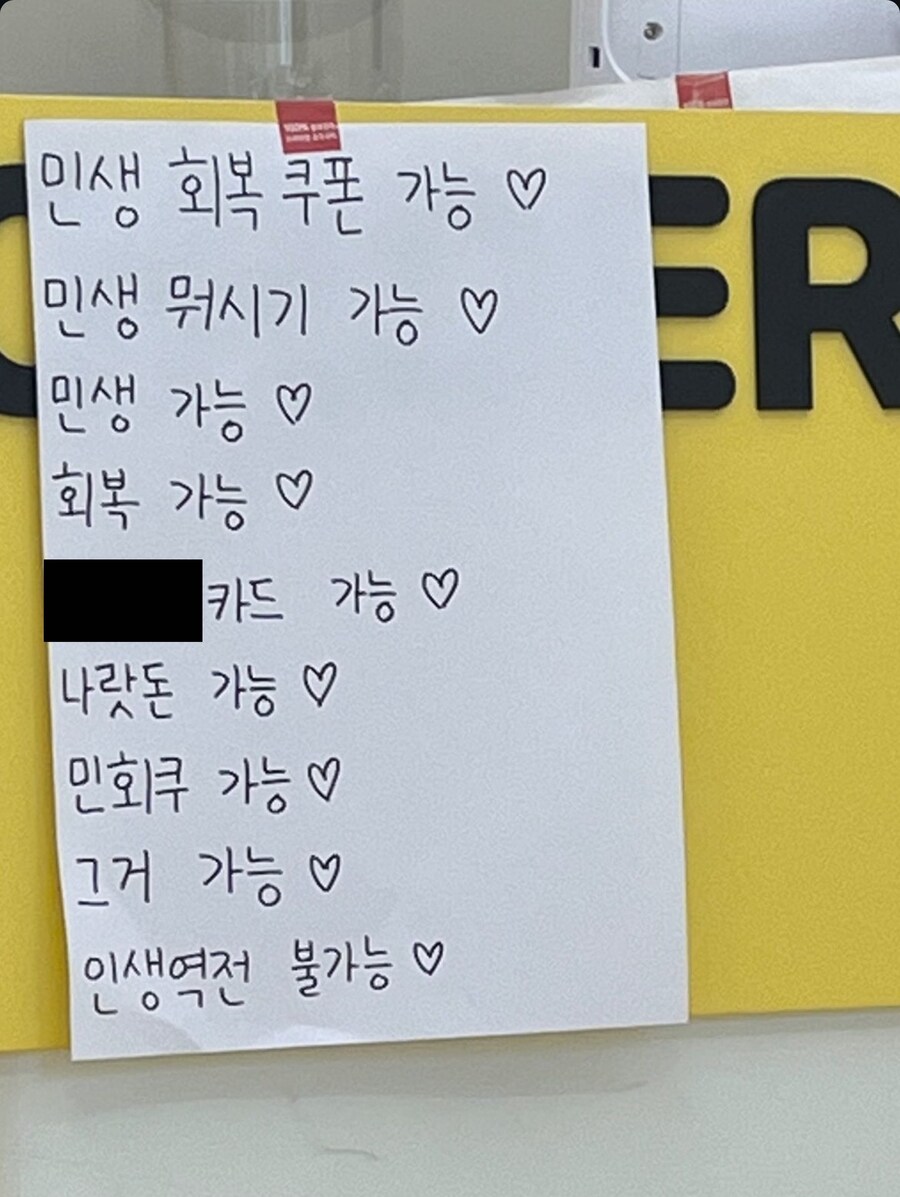 민생 회복 쿠폰 가능 ♡
민생 뭐시기 가능 ♡
민생 가능 ♡
회복 가능 ♡
카드 가능 ♡
나랏돈 가능 ♡
민회쿠 가능 ♡
그거 가능 ♡
인생역전 불가능 ♡
ER